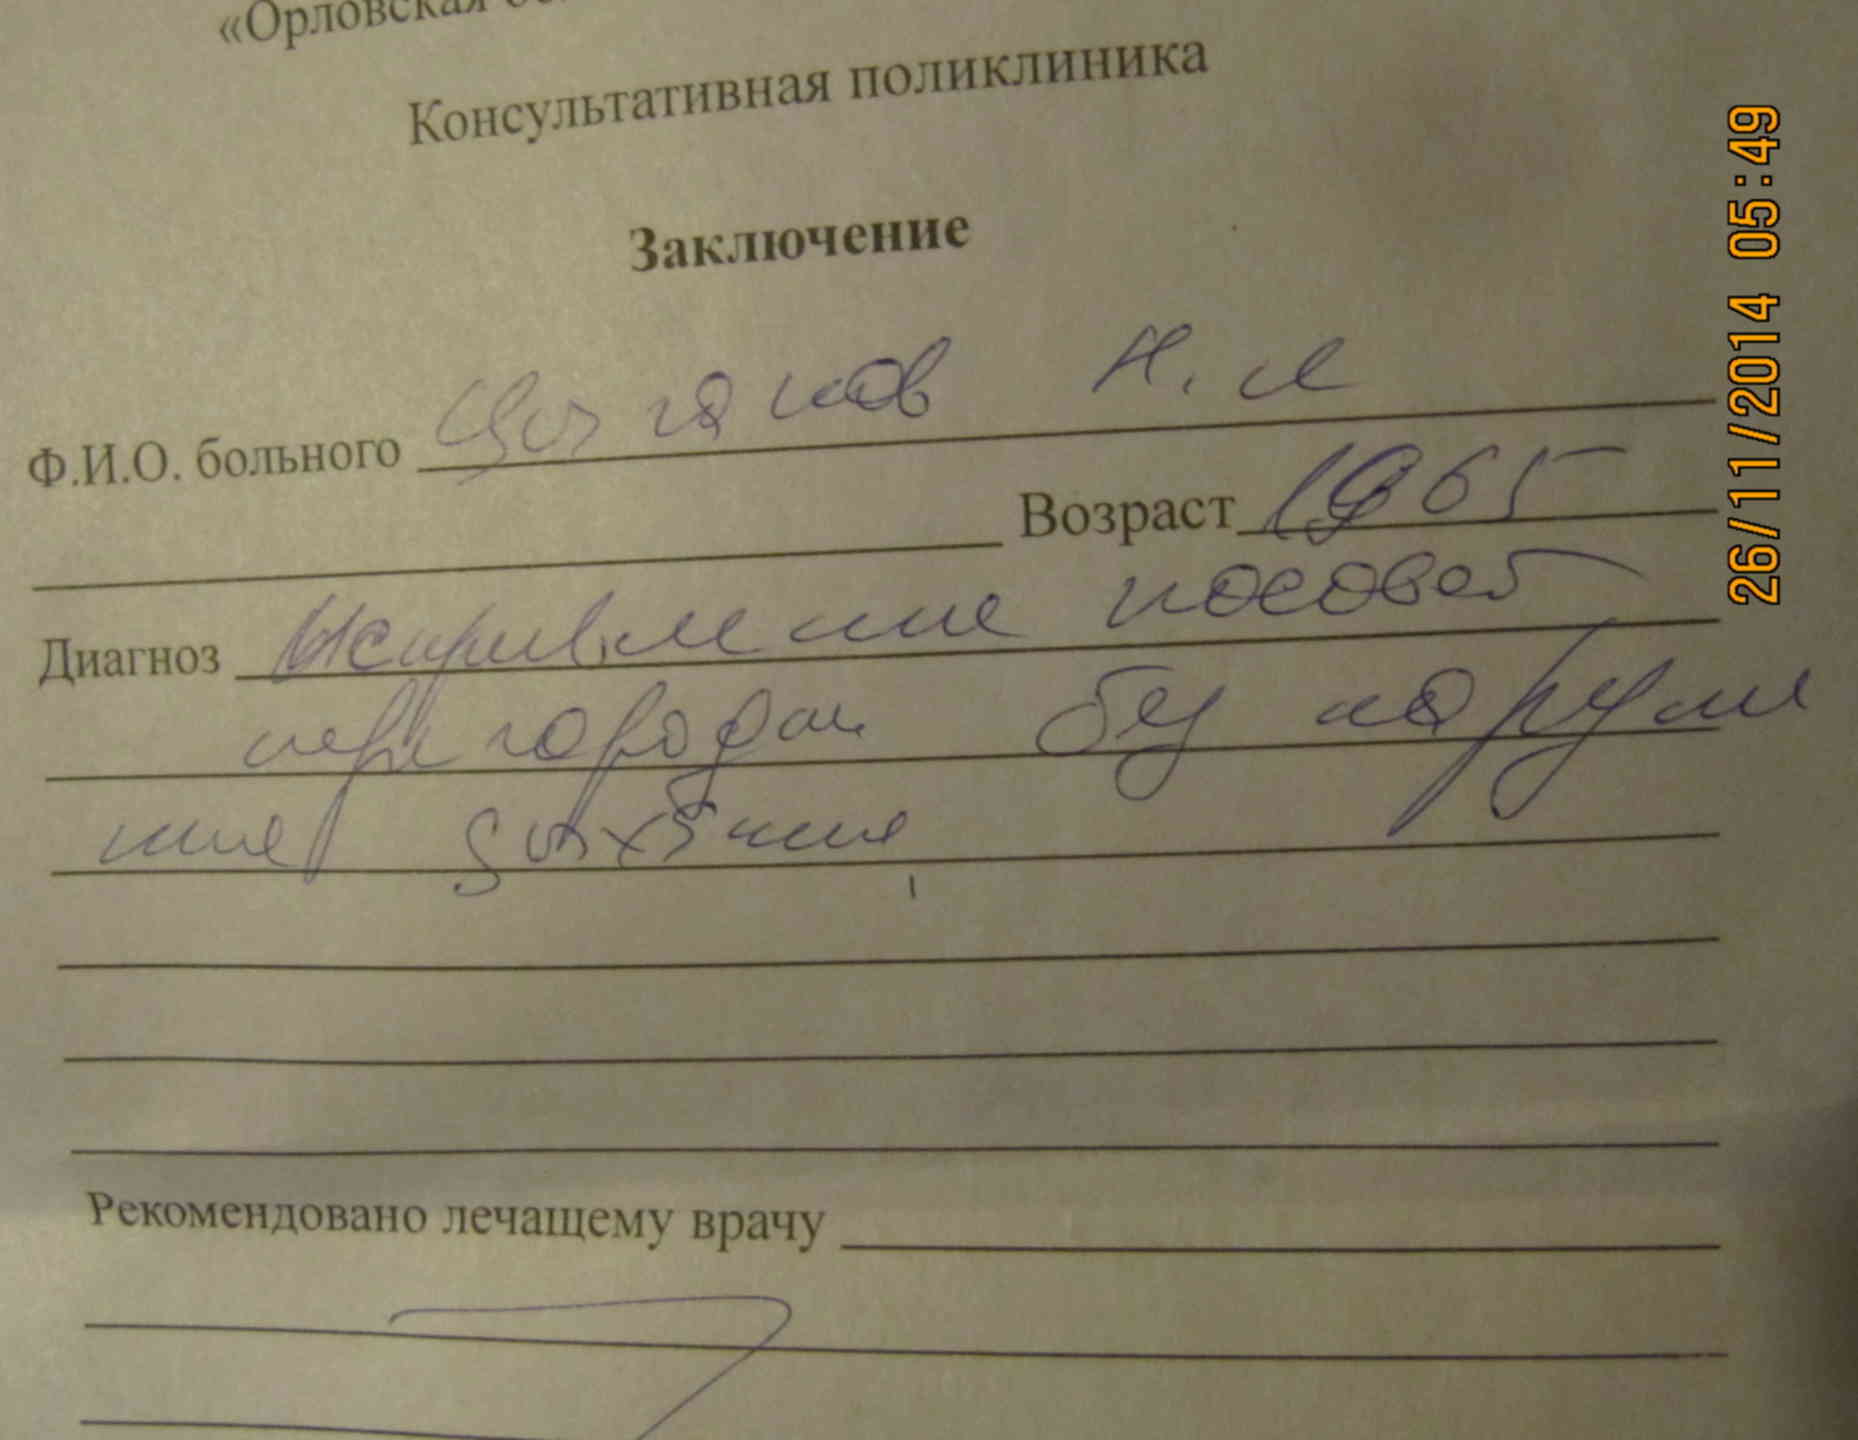 «Орловская
Консультативная поликлиника
Заключение
Ф.И.О. больного Цыганков Н. И
Возраст 1965
Диагноз Искривление носовой
перегородки без наруше
ния дыхания
Рекомендовано лечащему врачу
26/11/2014 05:49